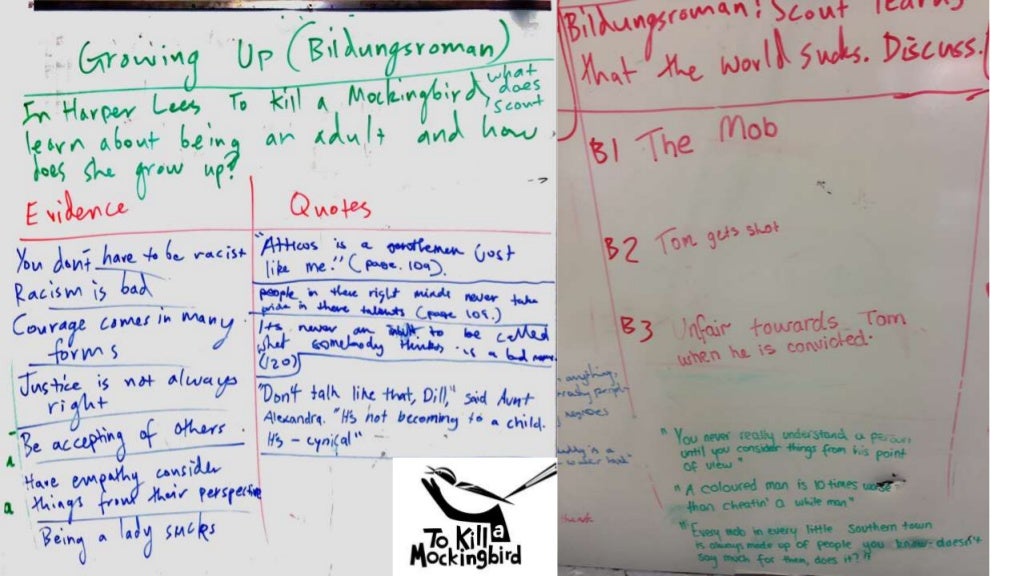 Growing Up (Bildungsroman)
In Harper Lees To Kill a Mockingbird, what
does
scout
learn about being an adult and how
does she grow up?
Evidence
You don't have to be racist
Racism is bad
Courage comes in many
forms
Justice is not always
right
Be accepting of others.
Have empathy consider
things from their perspective
Being a lady sucks
Quotes
"Atticus is a gentlemen just
like me." (page. 109).
people in there right minds never take
pride in there talents (page 109.)
Its never an to be called
what somebody thinks is a bad name
(120)
"Don't talk like that, Dill," said Aunt
Alexandra. "It's not becoming to a child.
It's - cynical"
To Kill a
Mockingbird
Bildungsroman: Scout learns
that the world sucks. Discuss.
B1 The Mob
B2 Tom gets shot
B3 Unfair towards Tom
when he is convicted.
anything,
negroes
"You never really understand a person
until you consider things from his point
of view"
"A coloured man is 10 times worse
than cheatin' a white man"
"Every mob in every little Southern town
is always made up of people you know-doesn't
say much for them, does it?"